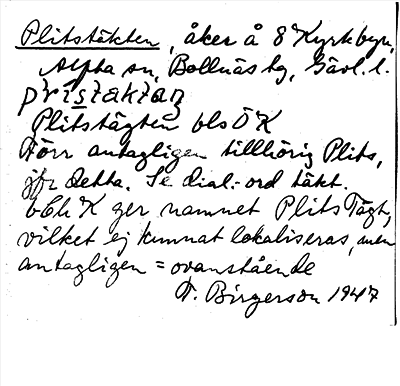 Plitstäkten, åker å 8 Kyrkbyn,
Alfta sn, Bollnäs tg, Gävl. l.
plistäktan
Plitstägten blsÖK
Förr antagligen tillhörig Plits,
jfr detta. Se dial.-ord täkt.
bCh K ger namnet Plits Tägt,
vilket ej kunnat lokaliseras, men
antagligen = ovanstående
F. Birgerson 1947